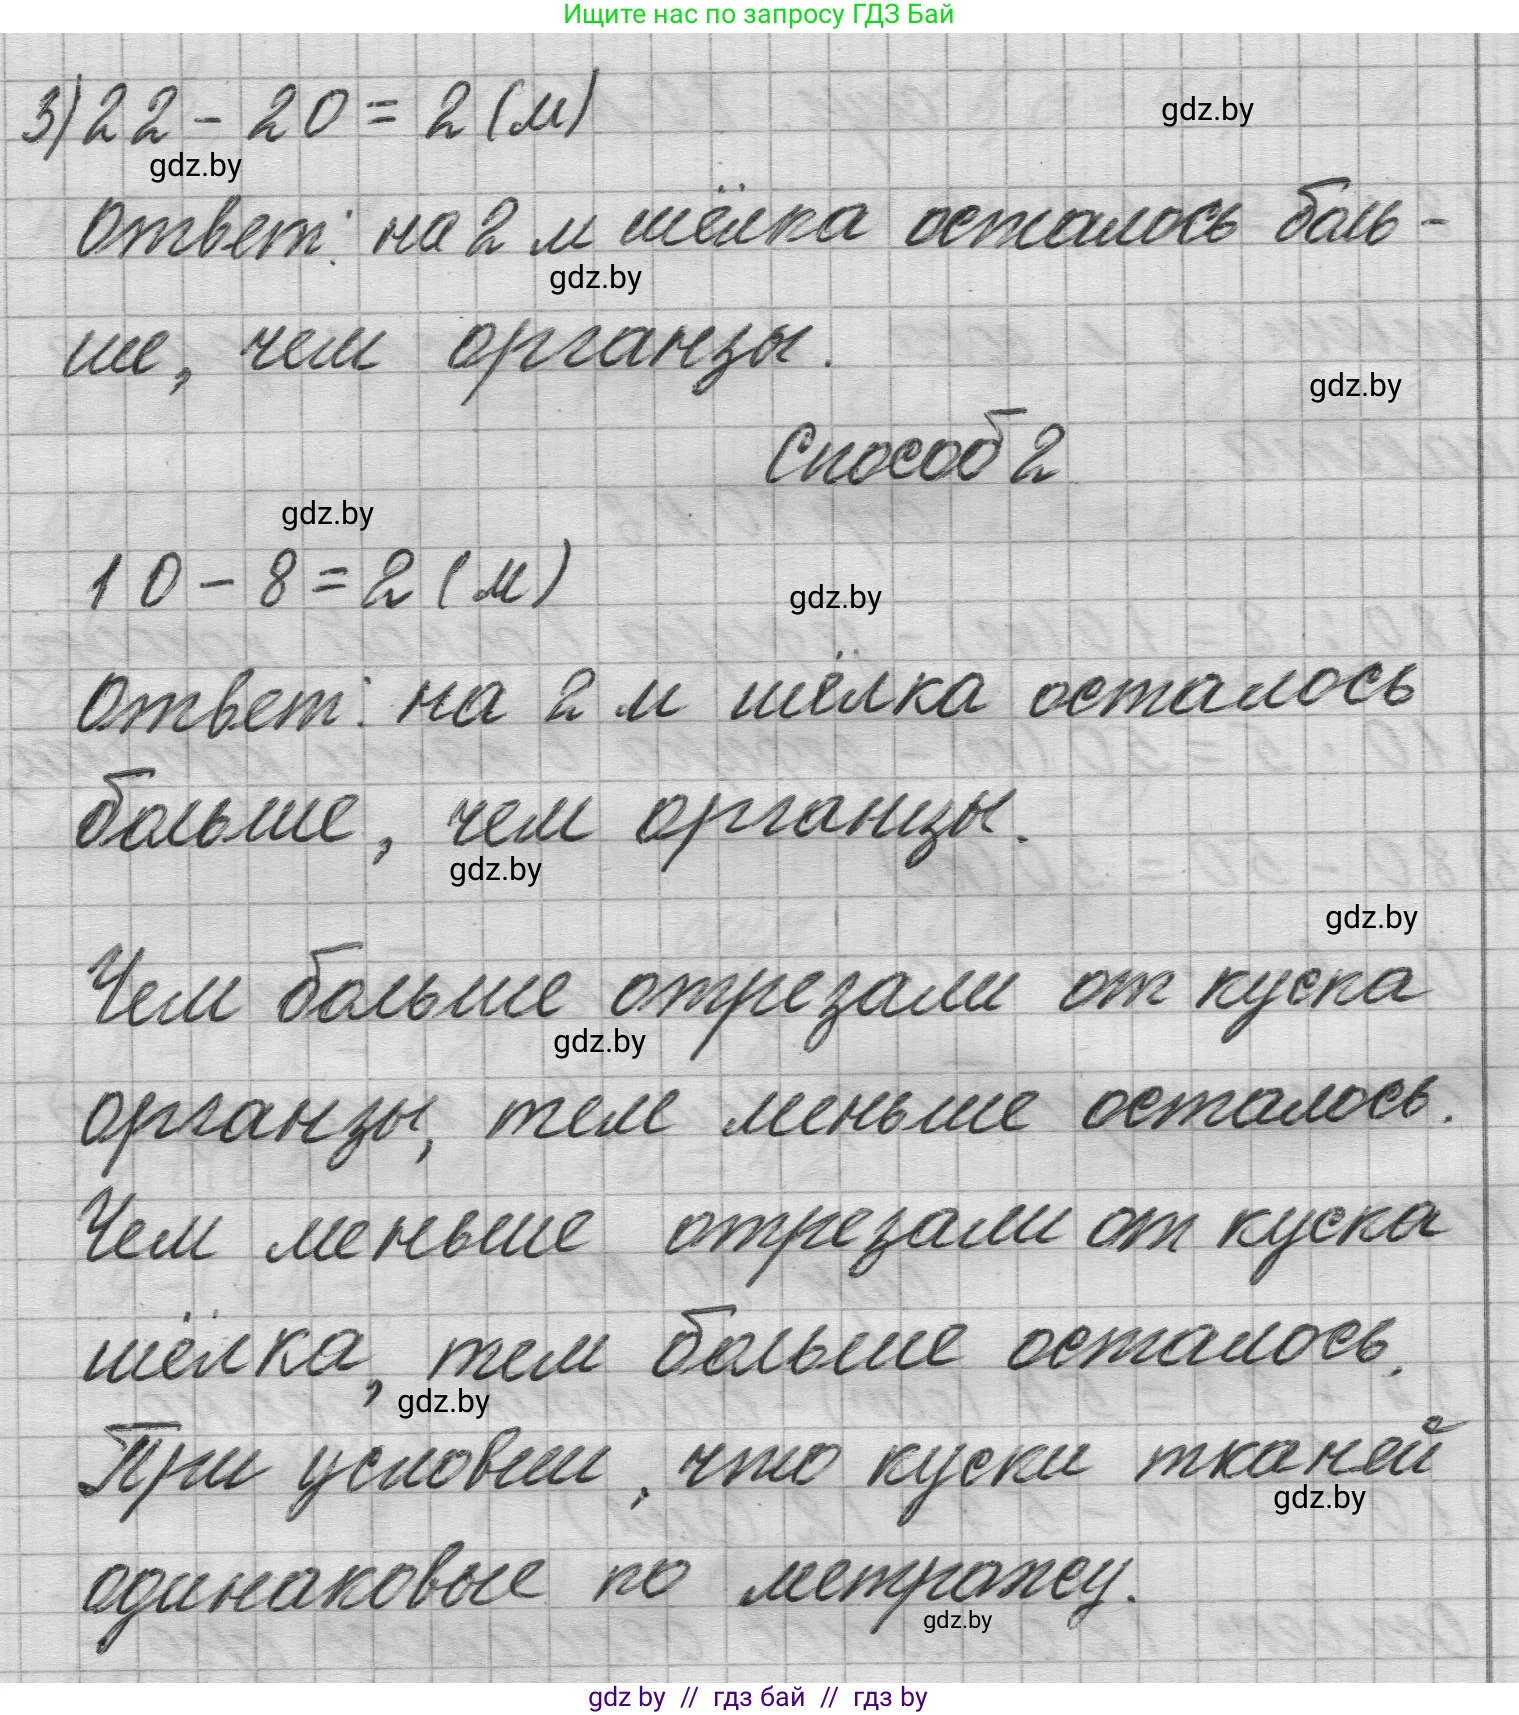 Ищите нас по запросу ГДЗ Бай
3) 22 - 20 = 2 (м)
gdz.by
gdz.by
Ответ: на 2 м шёлка осталось боль-
gdz.by
ше, чем органзы.
gdz.by
Способ 2
gdz.by
10 - 8 = 2 (м)
gdz.by
Ответ: на 2 м шёлка осталось
больше, чем органзы.
gdz.by
gdz.by
Чем больше отрезали от куска
gdz.by
органзы, тем меньше осталось.
Чем меньше отрезали от куска
шёлка, тем больше осталось.
gdz.by
При условии, что куски тканей
gdz.by
одинаковые по метражу.
gdz.by
gdz by // гдз бай // гдз by